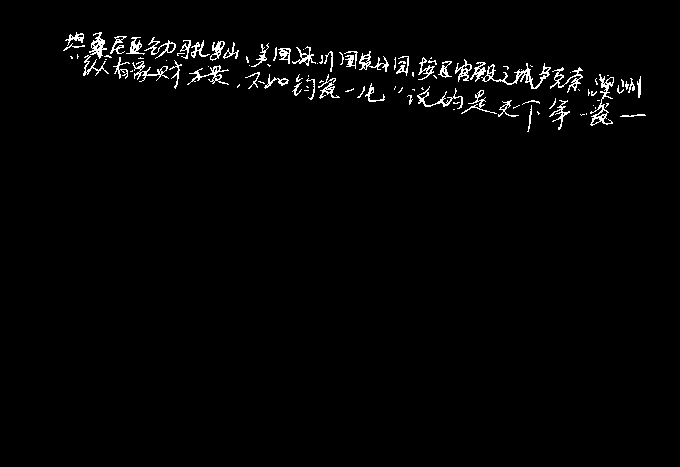 坦桑尼亚乞力马扎罗山、美国冰川国家公园、埃及宫殿之城卢克索、澳洲
“纵有家财万贯，不如钧瓷一片”说的是天下第一瓷—